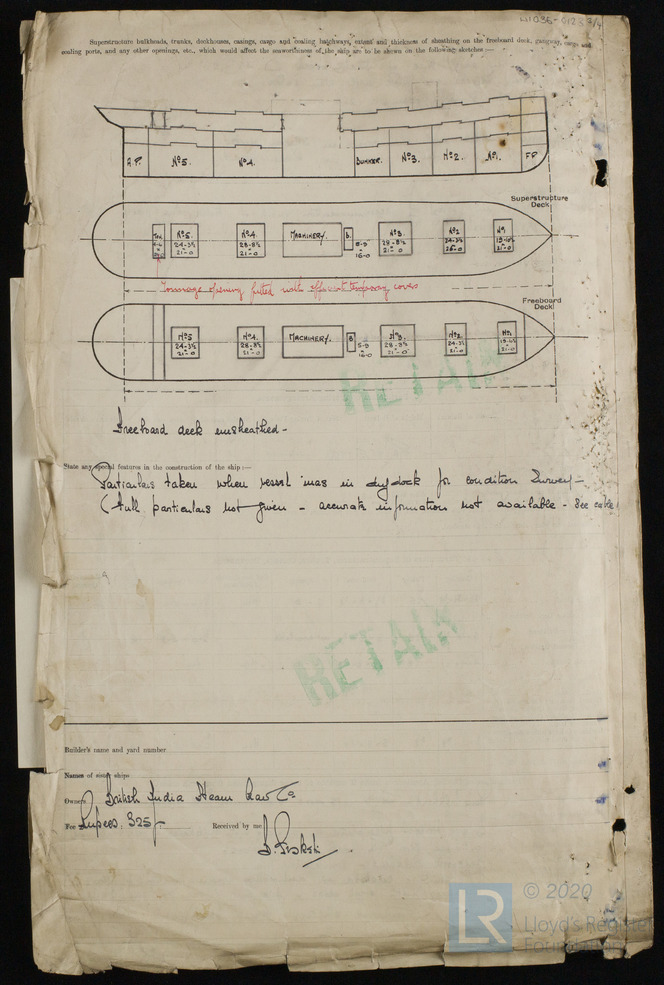 Superstructure bulkheads, trunks, deckhouses, casings, cargo and coaling hatchways, extent and thickness of sheathing on the freeboard deck, gangway, cargo and
coaling ports, and any other openings, etc., which would affect the seaworthiness of the ship are to be shown on the following sketches :—
A.P. No5. No4. BUNKER. No3. No2. No1. FP
Superstructure
Deck
No5. No4. MACHINERY. B. No3. No2 No1
24-3½ 28-8½ 5-9 28-8½ 24-3½
21-0 21-0 16-0 21-0 21-0
Tonnage opening fitted with efficient temporary covers
Freeboard
Deck
No5 No4. MACHINERY. B No3. No2. No1.
24-3½ 28-8½ 5-9 28-8½ 24-3½
21-0 21-0 16-0 21-0 21-0 21-0
RETAIN
Freeboard deck unsheathed -
State any special features in the construction of the ship :—
Particulars taken when vessel was in dry dock for condition Survey -
(Full particulars not given - accurate information not available - See cable
RETAIN
Builder's name and yard number
Names of sister ships
Owners British India Steam Nav Co
Fee Rupees. 325/-
Received by me
LR © 2020
Lloyd's Register
Foundation